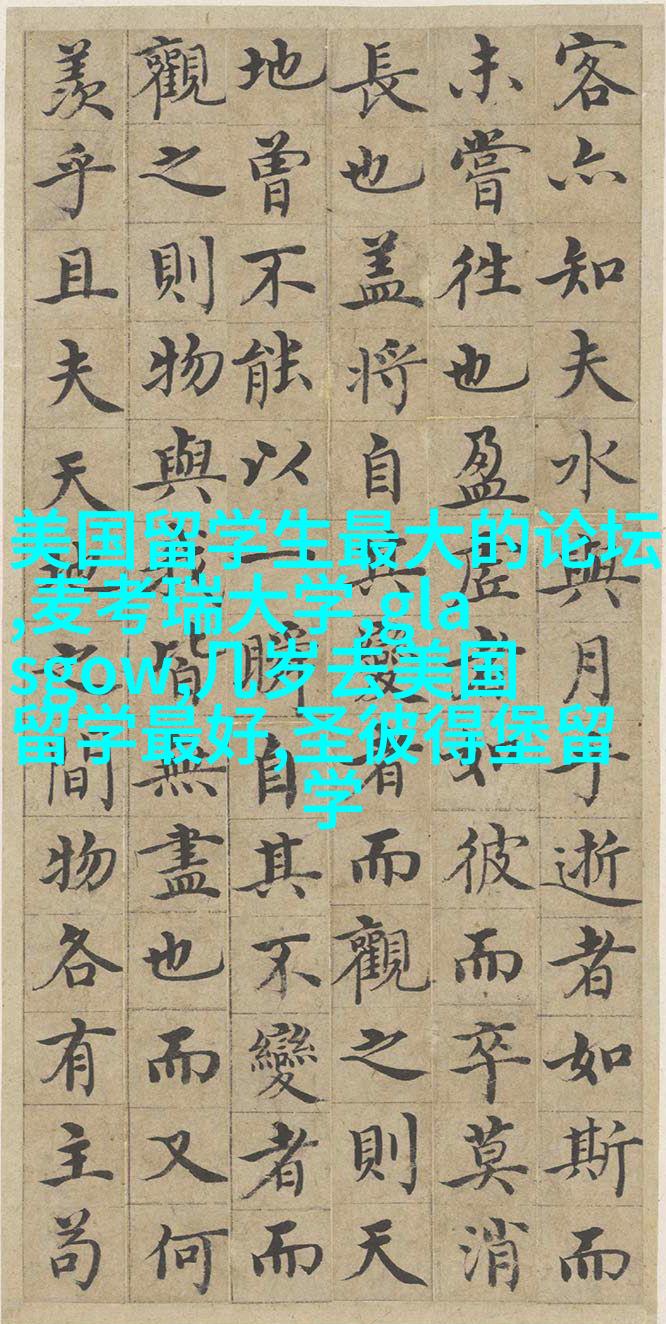 客亦知夫水與月乎逝者如斯而
未嘗徃也盈虛者如彼而卒莫消
長也盖將自其變者而觀之則天
地曾不能以一瞬自其不變者而
觀之則物與我皆無盡也而又何
羨乎且夫天地之間物各有主苟
美国留学生最大的论坛
,麦考瑞大学,gla
sgow,几岁去美国
留学最好,圣彼得堡留
学